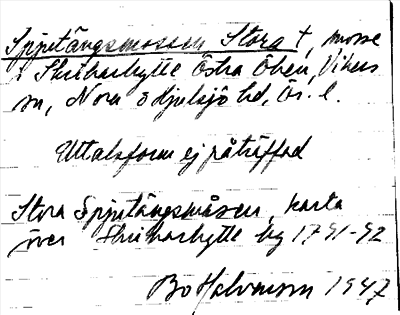 Spjutängsmossen Stora †, mosse
i Skrikarhytte Östra Öken, Vikers
sn, Nora o Hjulsjö hd, Ör. l.
Uttalsform ej påträffad
Stora Spjutängsmåsen, karta
över Skrikarhytte by 1791-92
Bo Halvarsson 1947